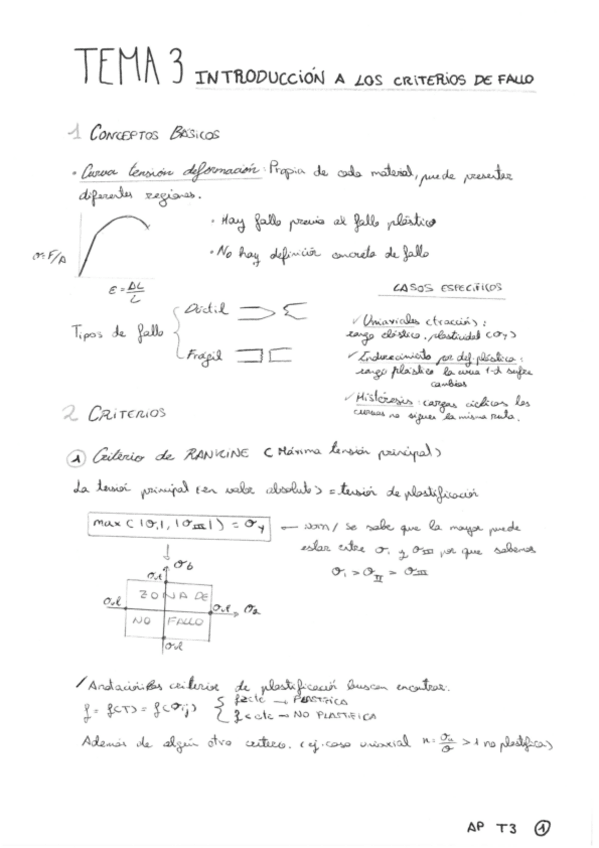 TEMA 3 INTRODUCCIÓN A LOS CRITERIOS DE FALLO
1 CONCEPTOS BÁSICOS
• Curva tensión deformación: Propia de cada material, puede presentar
diferentes regiones.
• Hay fallo previo al fallo plástico
• No hay definición concreta de fallo
σ=F/A
ε = ΔL/L
CASOS ESPECÍFICOS
Tipos de fallo
Dúctil
Frágil
✓ Uniaxiales (tracción):
rango elástico, plasticidad (σy)
✓ Endurecimiento por def. plástica:
rango plástico la curva t-d sufre
cambios
✓ Histéresis: cargas cíclicas las
curvas no siguen la misma ruta.
2 CRITERIOS
① Criterio de RANKINE (Máxima tensión principal)
La tensión principal (en valor absoluto) = tensión de plastificación
max(|σI|, |σIII|) = σy
— nom/ se sabe que la mayor puede
estar entre σI y σIII por que sabemos
σI > σII > σIII
σb
ZONA DE
NO FALLO
/Anotación: los criterios de plastificación buscan encontrar:
f = f(T) = f(σij)
f≥cte → PLASTIFICA
f≤cte → NO PLASTIFICA
Además de algún otro criterio. (ej. caso uniaxial n = σu/σ > 1 no plastifica)
AP T3 ①